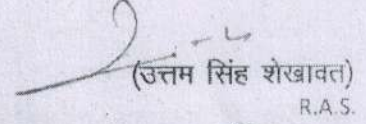 (उत्तम सिंह शेखावत)
R.A.S.